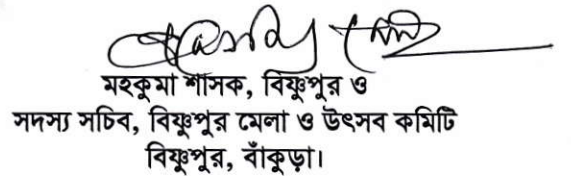 মহকুমা শাসক, বিষ্ণুপুর ও
সদস্য সচিব, বিষ্ণুপুর মেলা ও উৎসব কমিটি
বিষ্ণুপুর, বাঁকুড়া।